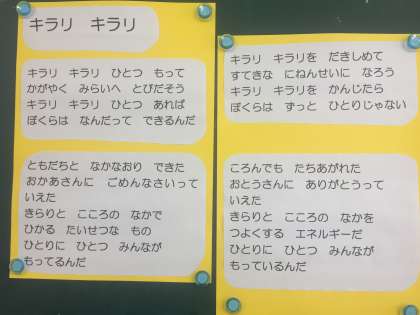 キラリ　キラリ
キラリ　キラリ　ひとつ　もって
かがやく　みらいへ　とびだそう
キラリ　キラリ　ひとつ　あれば
ぼくらは　なんだって　できるんだ
ともだちと　なかなおり　できた
おかあさんに　ごめんなさいって
いえた
きらりと　こころの　なかで
ひかる　たいせつな　もの
ひとりに　ひとつ　みんなが
もってるんだ
キラリ　キラリを　だきしめて
すてきな　にねんせいに　なろう
キラリ　キラリを　かんじたら
ぼくらは　ずっと　ひとりじゃない
ころんでも　たちあがれた
おとうさんに　ありがとうって
いえた
きらりと　こころの　なかを
つよくする　エネルギーだ
ひとりに　ひとつ　みんなが
もっているんだ